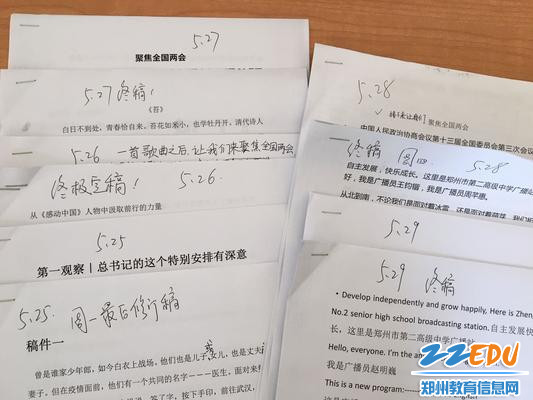 5.27
聚焦全国两会
5.27 终稿!
《苔》
白日不到处，青春恰自来。苔花如米小，也学牡丹开。清代诗人
5.26 一首歌曲之后，让我们来聚焦全国两会
终极定稿! 5.26.
从《感动中国》人物中汲取前行的力量
5.25
第一观察｜总书记的这个特别安排有深意
5.25. 周一最后修订稿
稿件一
曾是谁家少年郎，如今白衣上战场，他们也是儿子或女儿，也是丈夫
妻子，但在疫情面前，他们有一个共同的名字——医生，面对来
说，签了字，按下手印，前往武汉，
5.28
接下来让我们 聚焦全国两会
中国人民政治协商会议第十三届全国委员会第三次会议
终稿 周四 5.28
自主发展，快乐成长。这里是郑州市第二高级中学广播站
好，我是广播员王钧锴，我是广播员周芊惠。
从北到南，不论我们是面对着冰雪，还是面对着
5.29
5.29 终稿
• Develop independently and grow happily, Here is Zheng
No.2 senior high school broadcasting station.自主发展快
长，这里是郑州市第二高级中学广播站
Hello, everyone. I'm the an
我是广播员赵明巍
This is a new program:
ZZEDU
郑州教育信息网